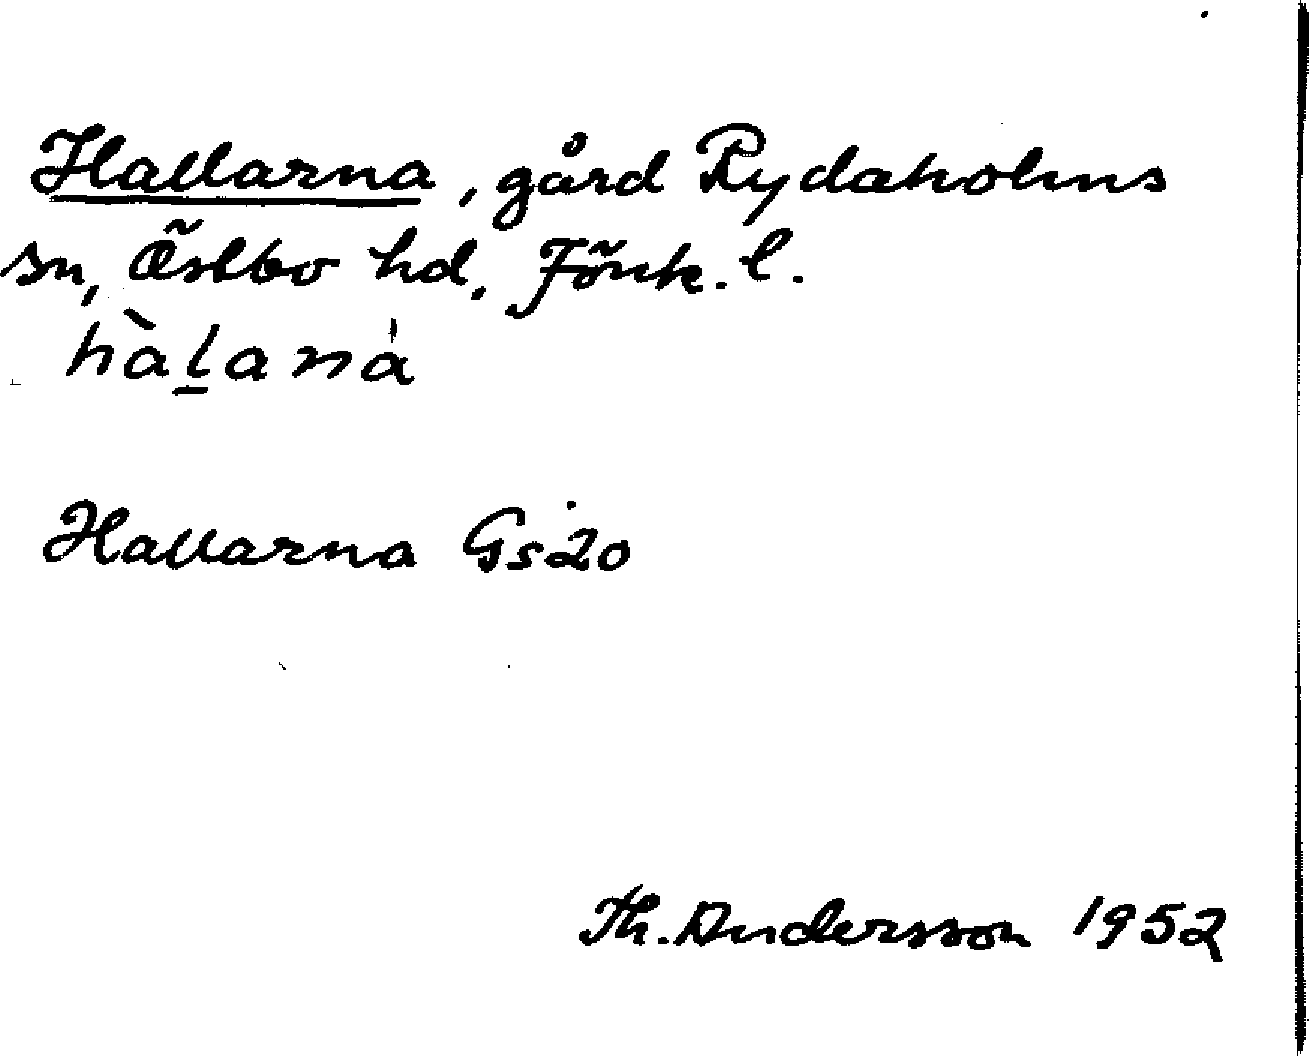 Hallarna, gård Rydaholms
sn, Östbo hd. Jönk. l.
hàḻaná
Hallarna Gs20
Th. Andersson 1952